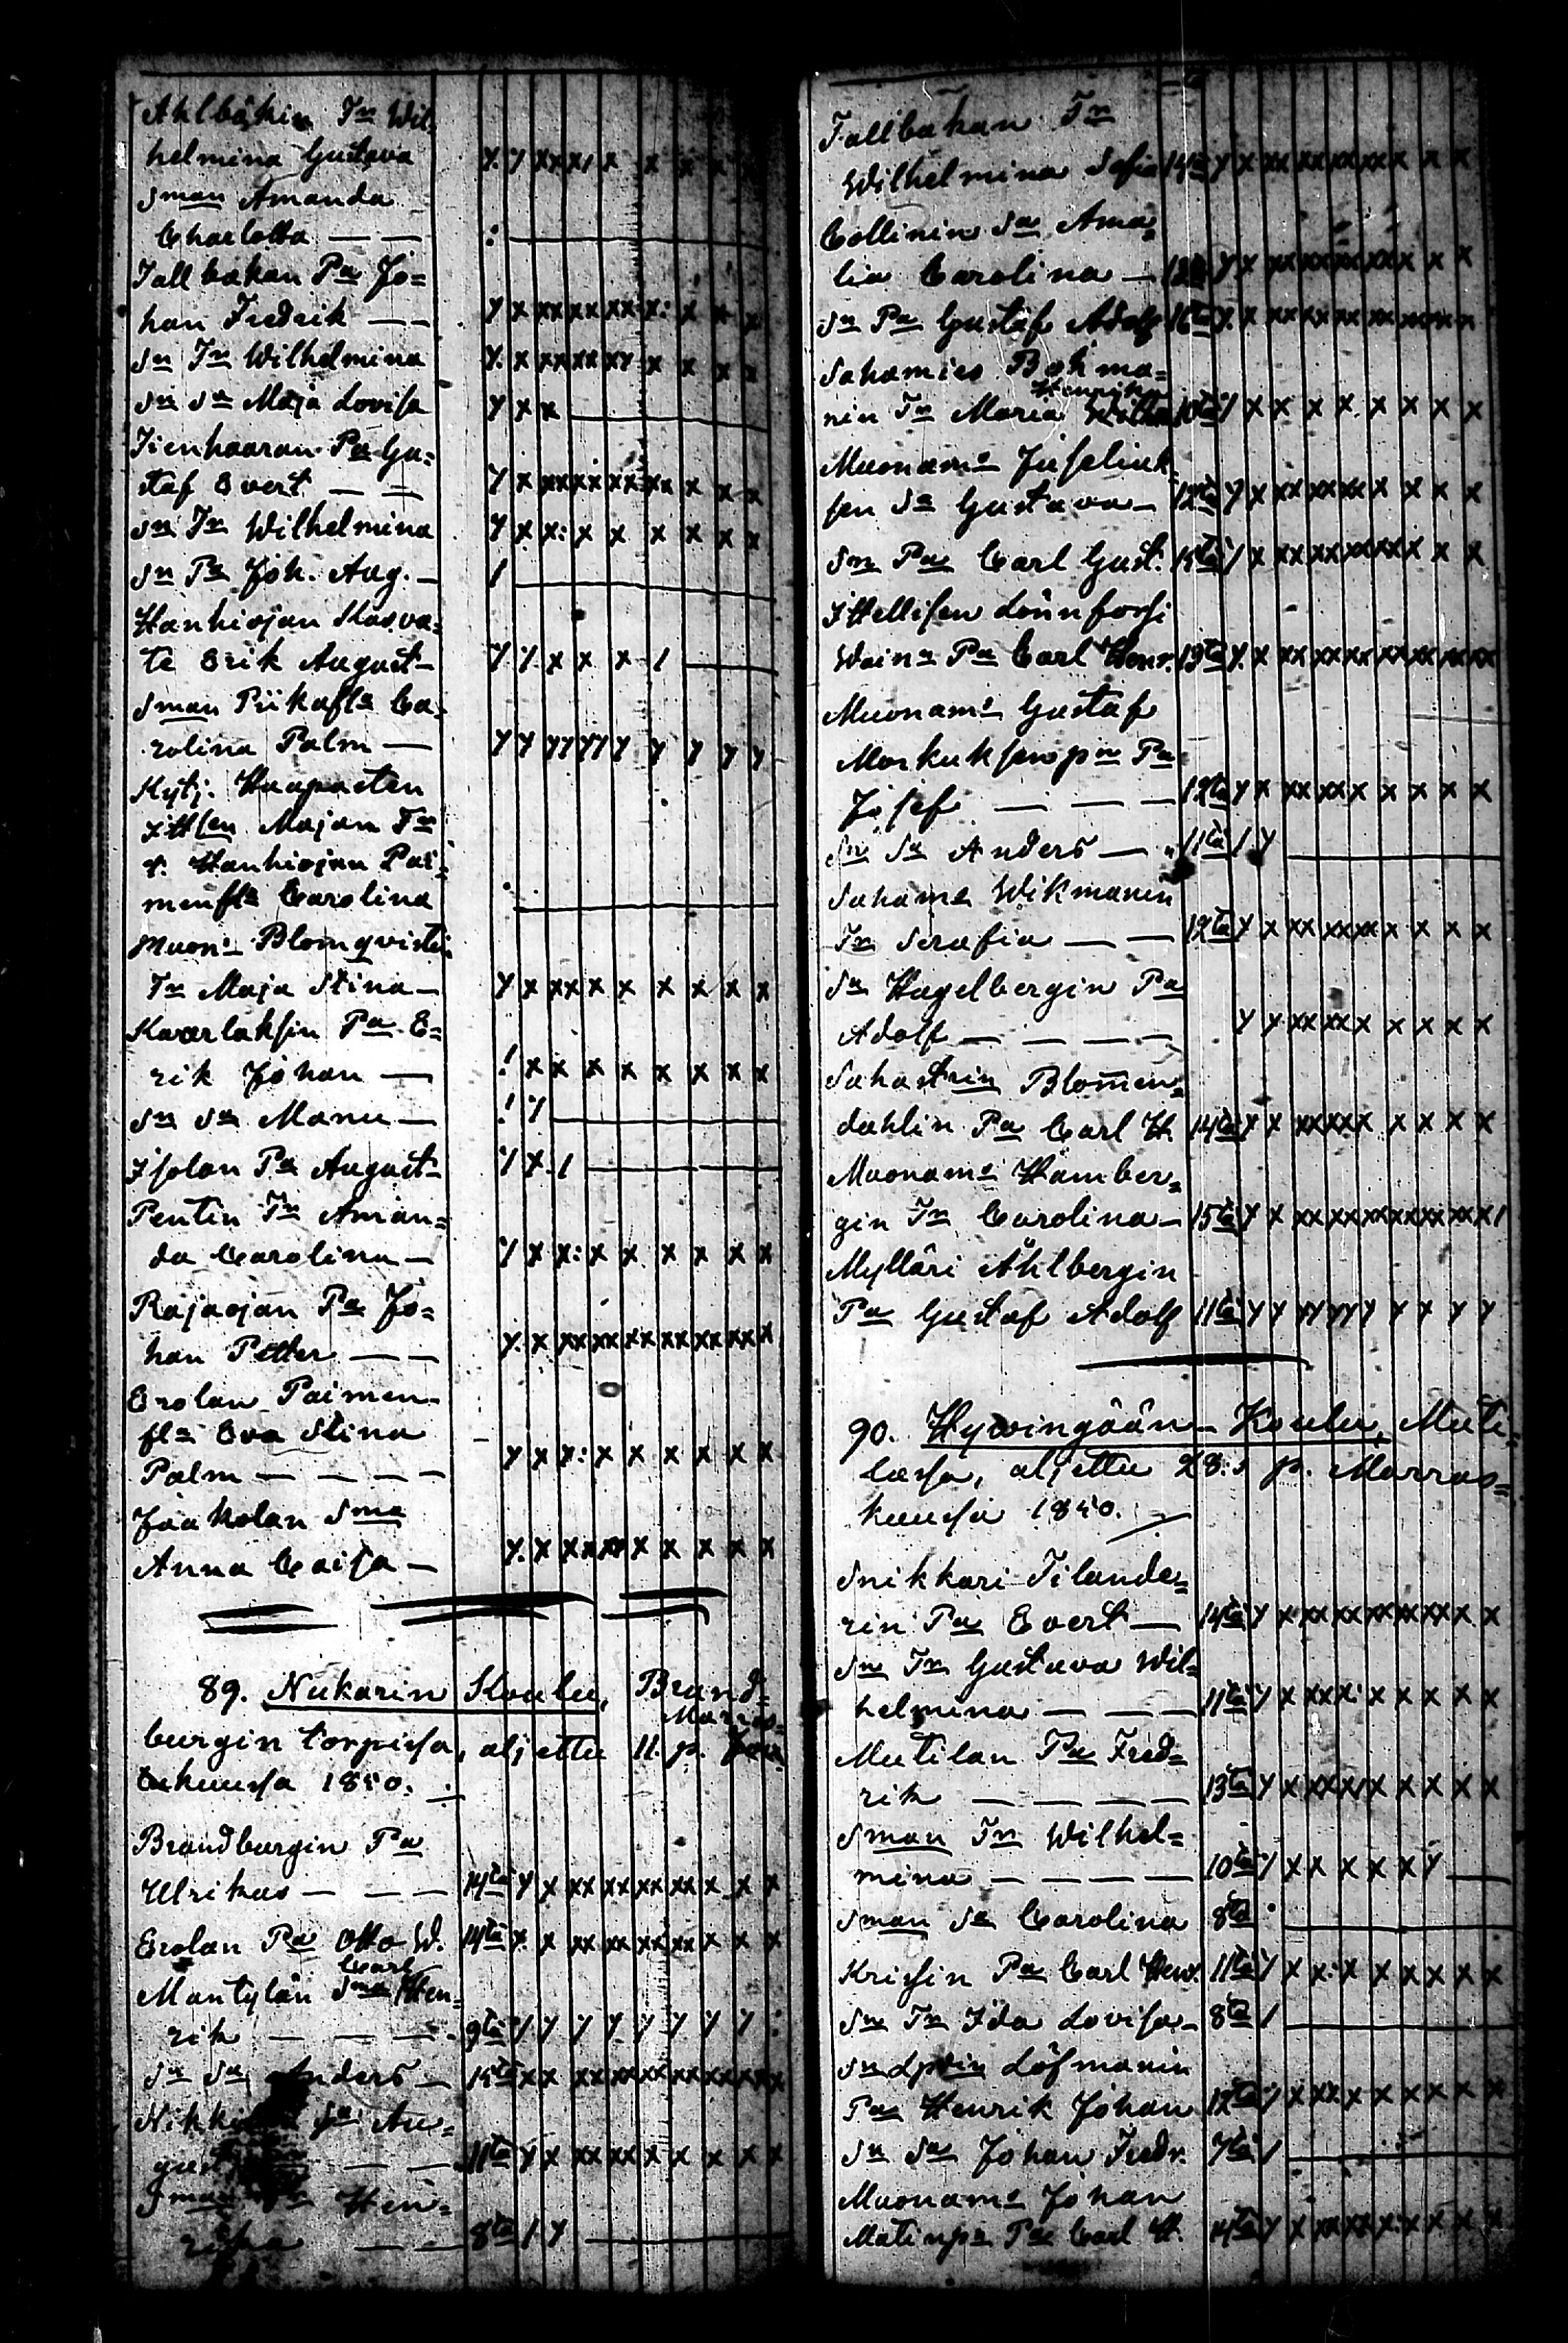 Ahlbäkin Tr Wil-
helmina Gustava y. y xx x/ x x x x x
Sman Amanda
Charlotta — — :
Tallbakan Pa Jo=
han Fredrik — — y x xx xx xx x: x x x
Sn Tr Wilhelmina y. x xx xx xy x x x x
Sn Sa Maja Lovisa y x x
Tienhaaran Pa Gu=
staf Evert — — y x xx xx xx xx x x x
Sn Tr Wilhelmina y x x: x x x x x x
Sn Pa Joh. Aug. — /
Hanhiojan Kasva=
te Erik August— y y. x x x /
Sman Piikafla Ca=
rolina Palm — y y yy yy y y y y y
Kytj. Haapasten
Ittsen Majan Tr
r. Hanhiojan Pai=
menfla Carolina
Muon. Blomqvistin
Tr Maja Stina — y x xx x x x x x x
Kaarlaksin Pa E=
rik Johan — ! x x x x x x x x
Sn Sa Manu — ! y
Isolan Pa August— y x /
Pentin Tr Aman=
da Carolina — y x x: x x x x x x
Rajaojan Pa Jo=
han Petter — — y. x xx xx xx xx xx xx x
Erolan Paimen-
fla Eva Stina
Palm — — — — y x x: x x x x x x
Jaakolan Sma
Anna Caisa — y. x xx xx x x x x x
89. Nukarin Koulu, Brand=
Marras=
burgin torpissa, aljettu 11. p.
kuussa 1850.
Brandburgin Pa
Ulrikus — — — 14ta y x xx xx xx xx x x x
Erolan Pa Otto W. 14ta y. x xx xx xx xx x x x
Carl
Mäntylän Sma Hen=
rik — — — 9tä / y y y y y y y :
Sn Sa Anders — 15ta x x xx xx xx xx xx xx xx
Au=
gust — — 11ta y x xx xx x x x x x
Hen=
rika — — 8ta / y
Tallbakan Tr
Wilhelmina Sofia 14ta y x xx xx xx xx x x x
Collinin Sa Ama=
lia Carolina — y x xx xx xx xx x x x
Sn Pa Gustaf Adolf 16ta y. x xx xx xx xx xx xx x
Sahamies Bohma=
Henrika
nin Tr Maria 10ta y x x x x x x x x
Muonam. Juseliuk-
sen Sa Gustava — 12ta y x xx xx xx x x x x
Sn Pa Carl Gust. 15ta y x xx xx xx xx x x x
Ittellisen Lönnforsi
Wain. Pa Carl Henr. 13ta y. x xx xx xx xx xx xx xx
Muonam. Gustaf
Markuksenpn Pa
Josef — — — 12ta y x xx xx x x x x x
Sn Sa Anders — 11ta / y
Sahama Wikmanin
Tr Serafia — — 12ta y x xx xx xx x x x x
Sa Hagelbergin Pa
Adolf — — — — y y xx xx x x x x x
Sahastrin Blomen=
dahlin Pa Carl H. 14ta y x xx xx x x x x x
Muonam. Hamber=
gin Tr Carolina — 15ta y x xx xx xx xx xx xx x /
Mylläri Åhlbergin
Pa Gustaf Adolf 11ta y y yy yy y y x y y
90. Hywingään Koulu, Muti=
lassa, aljettu 28. p. Marras=
kuussa 1850.
Snikkari Tilande=
rin Pa Evert — 14ta y x xx xx xx xx xx x x
Sn Tr Gustava Wil=
helmina — — — 11ta y x xx x. x x x x x
Mutilan Pa Fred=
rik — — — — 13ta y x xx x/ x x x x x
Sman Tr Wilhel=
mina — — — — 10ta y x x x x x y
Sman Sa Carolina 8ta .
Krissin Pa Carl Henr. 11ta y x x: x x x x x x
Sn Tr Ida Lovisa — 8ta /
Löfmanin
Pa Henrik Johan 12ta y x xx. x x x x x x
Sn Sa Johan Fredr. 7ta /
Muonam. Johan
Matinpn Pa Carl H. 14ta y x xx xx x: x x x x